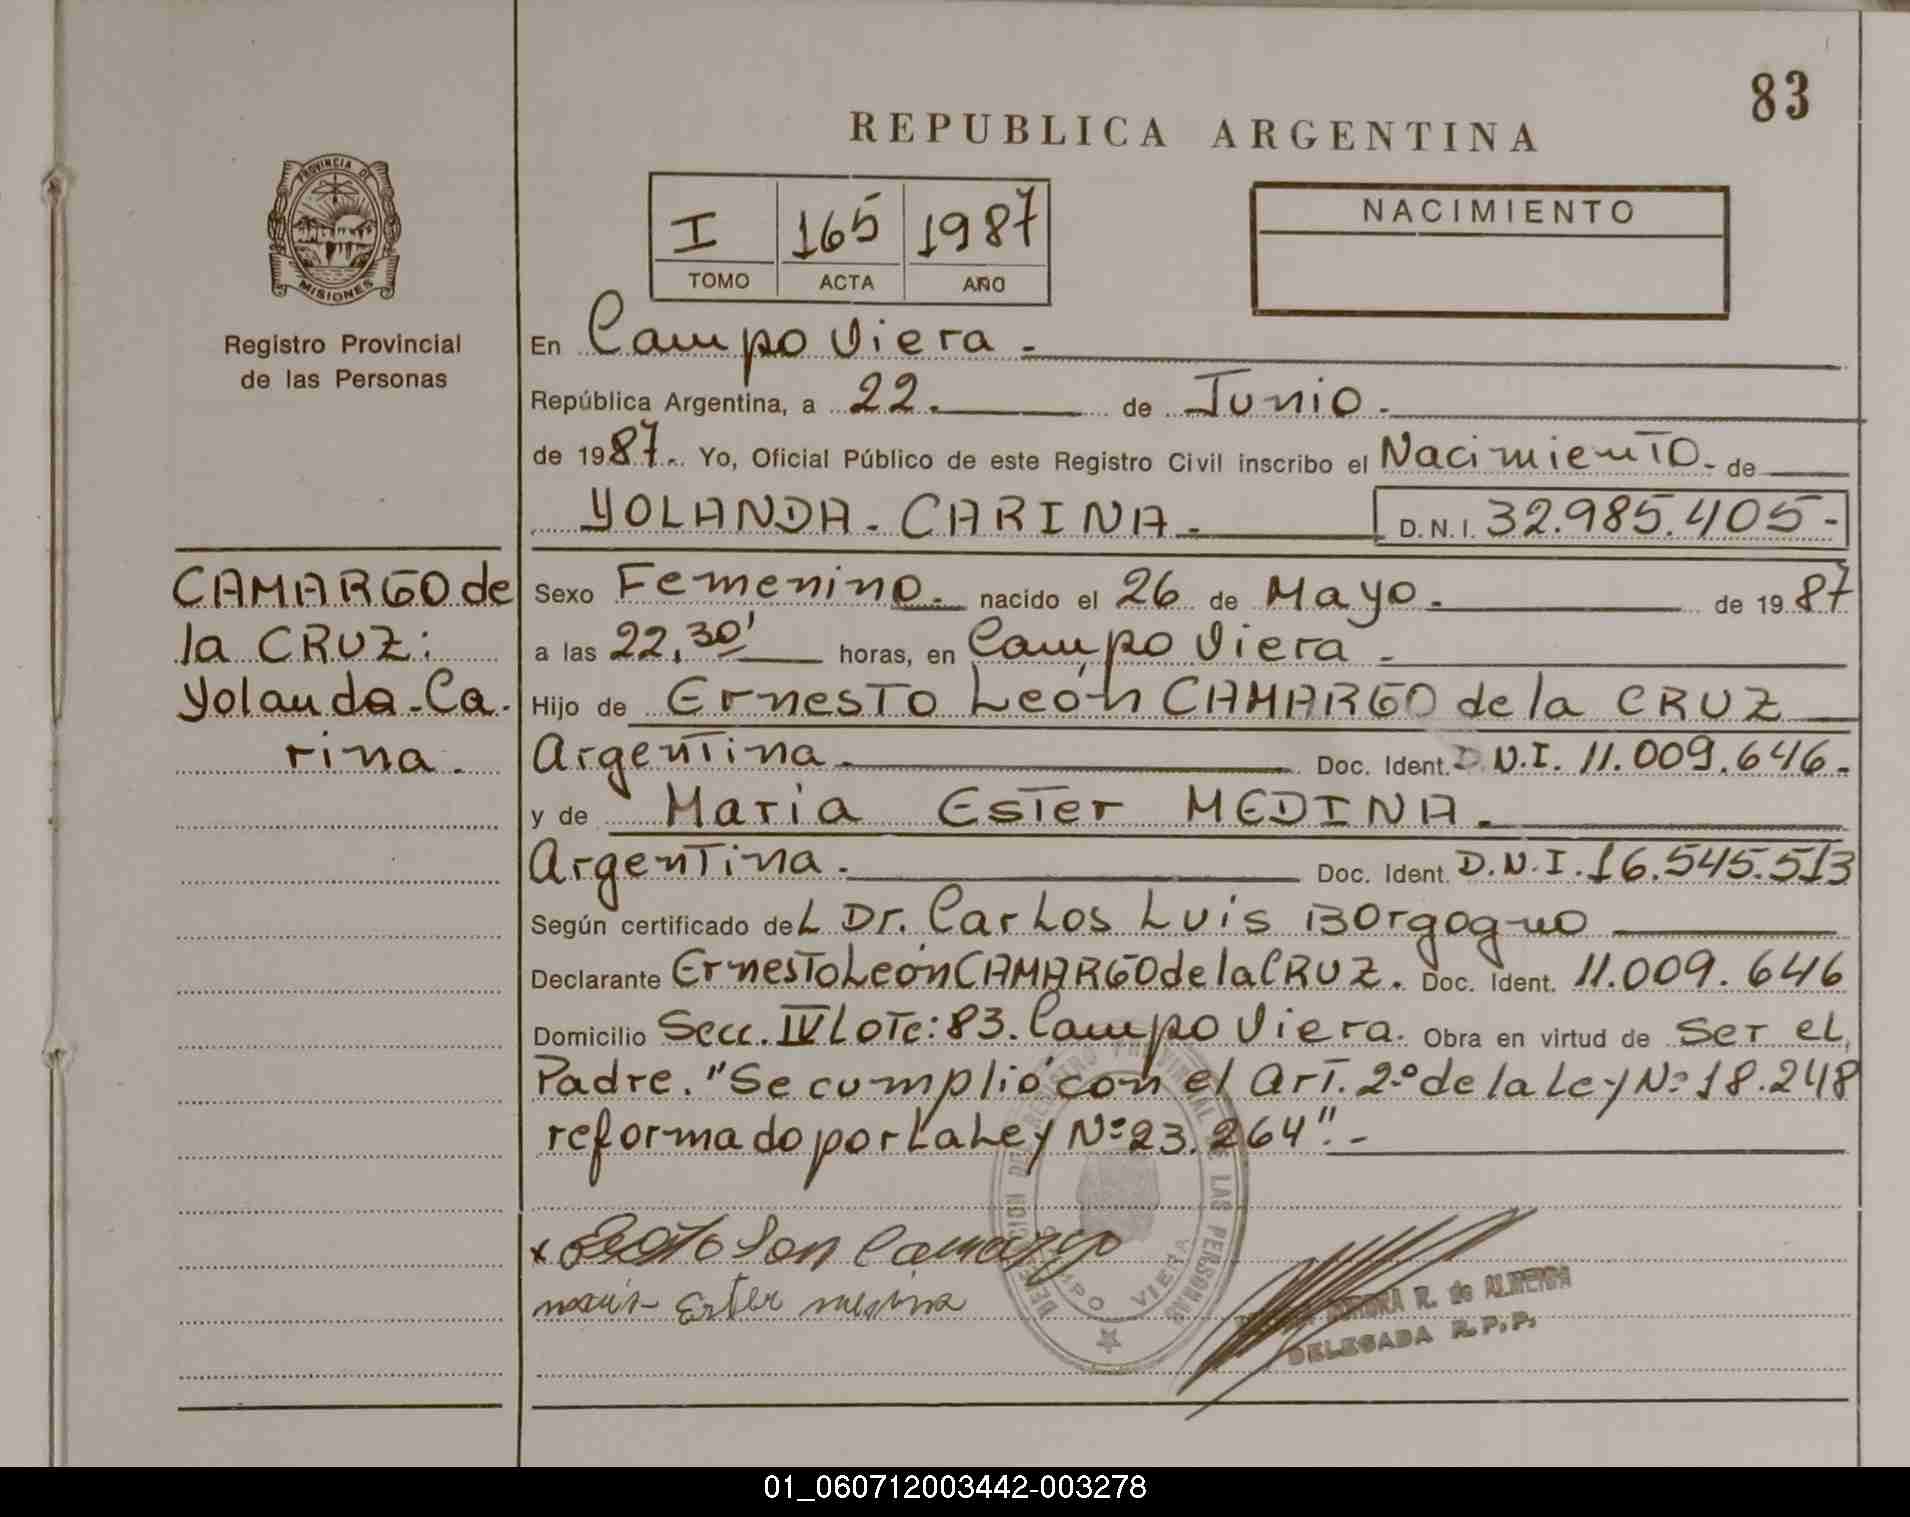 83
REPUBLICA ARGENTINA
PROVINCIA DE
MISIONES
Registro Provincial
de las Personas
I 165 1987
TOMO ACTA AÑO
NACIMIENTO
En Campo Viera -
República Argentina, a 22. de Junio.
de 1987.- Yo, Oficial Público de este Registro Civil inscribo el Nacimiento - de
YOLANDA - CARINA - D.N.I. 32.985.405-
CAMARGO de
la CRUZ:
Yolanda - Ca-
rina.
Sexo Femenino. nacido el 26 de Mayo. de 1987
a las 22,30' horas, en Campo Viera -
Hijo de Ernesto León CAMARGO de la CRUZ
Argentina. Doc. Ident. D.N.I. 11.009.646.-
y de Maria Ester MEDINA.
Argentina. Doc. Ident. D.N.I. 16.545.513
Según certificado deL Dr. CarLos Luis Borgogno
Declarante Ernesto León CAMARGO de la CRUZ. Doc. Ident. 11.009.646
Domicilio Secc. IV Lote: 83. Campo Viera. Obra en virtud de ser el
Padre. "Se cumplió con el Art. 2.º de la Ley Nº 18.248
reformado por La Ley Nº 23.264".-
x Leon Camargo
Maria Ester medina
DE LAS PERSONAS
CAMPO VIERA
R. de ALMEIDA
DELEGADA R.P.P.
01_060712003442-003278